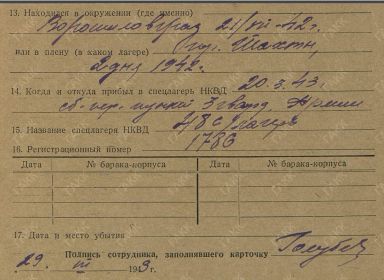 13. Находился в окружении (где именно)
Ворошиловград 21/VII-42 г.
или в плену (в каком лагере) гор. Шахты,
2 дня 1942 г.
14. Когда и откуда прибыл в спецлагерь НКВД 20.3.43.
сб.-пер. пункт 3 гвард. Армии
15. Название спецлагеря НКВД
16. Регистрационный номер 1786
Дата № барака-корпуса Дата № барака-корпуса
17. Дата и место убытия
Полпись сотрудника, заполнявшего карточку Голубев
29. III 1943 г.